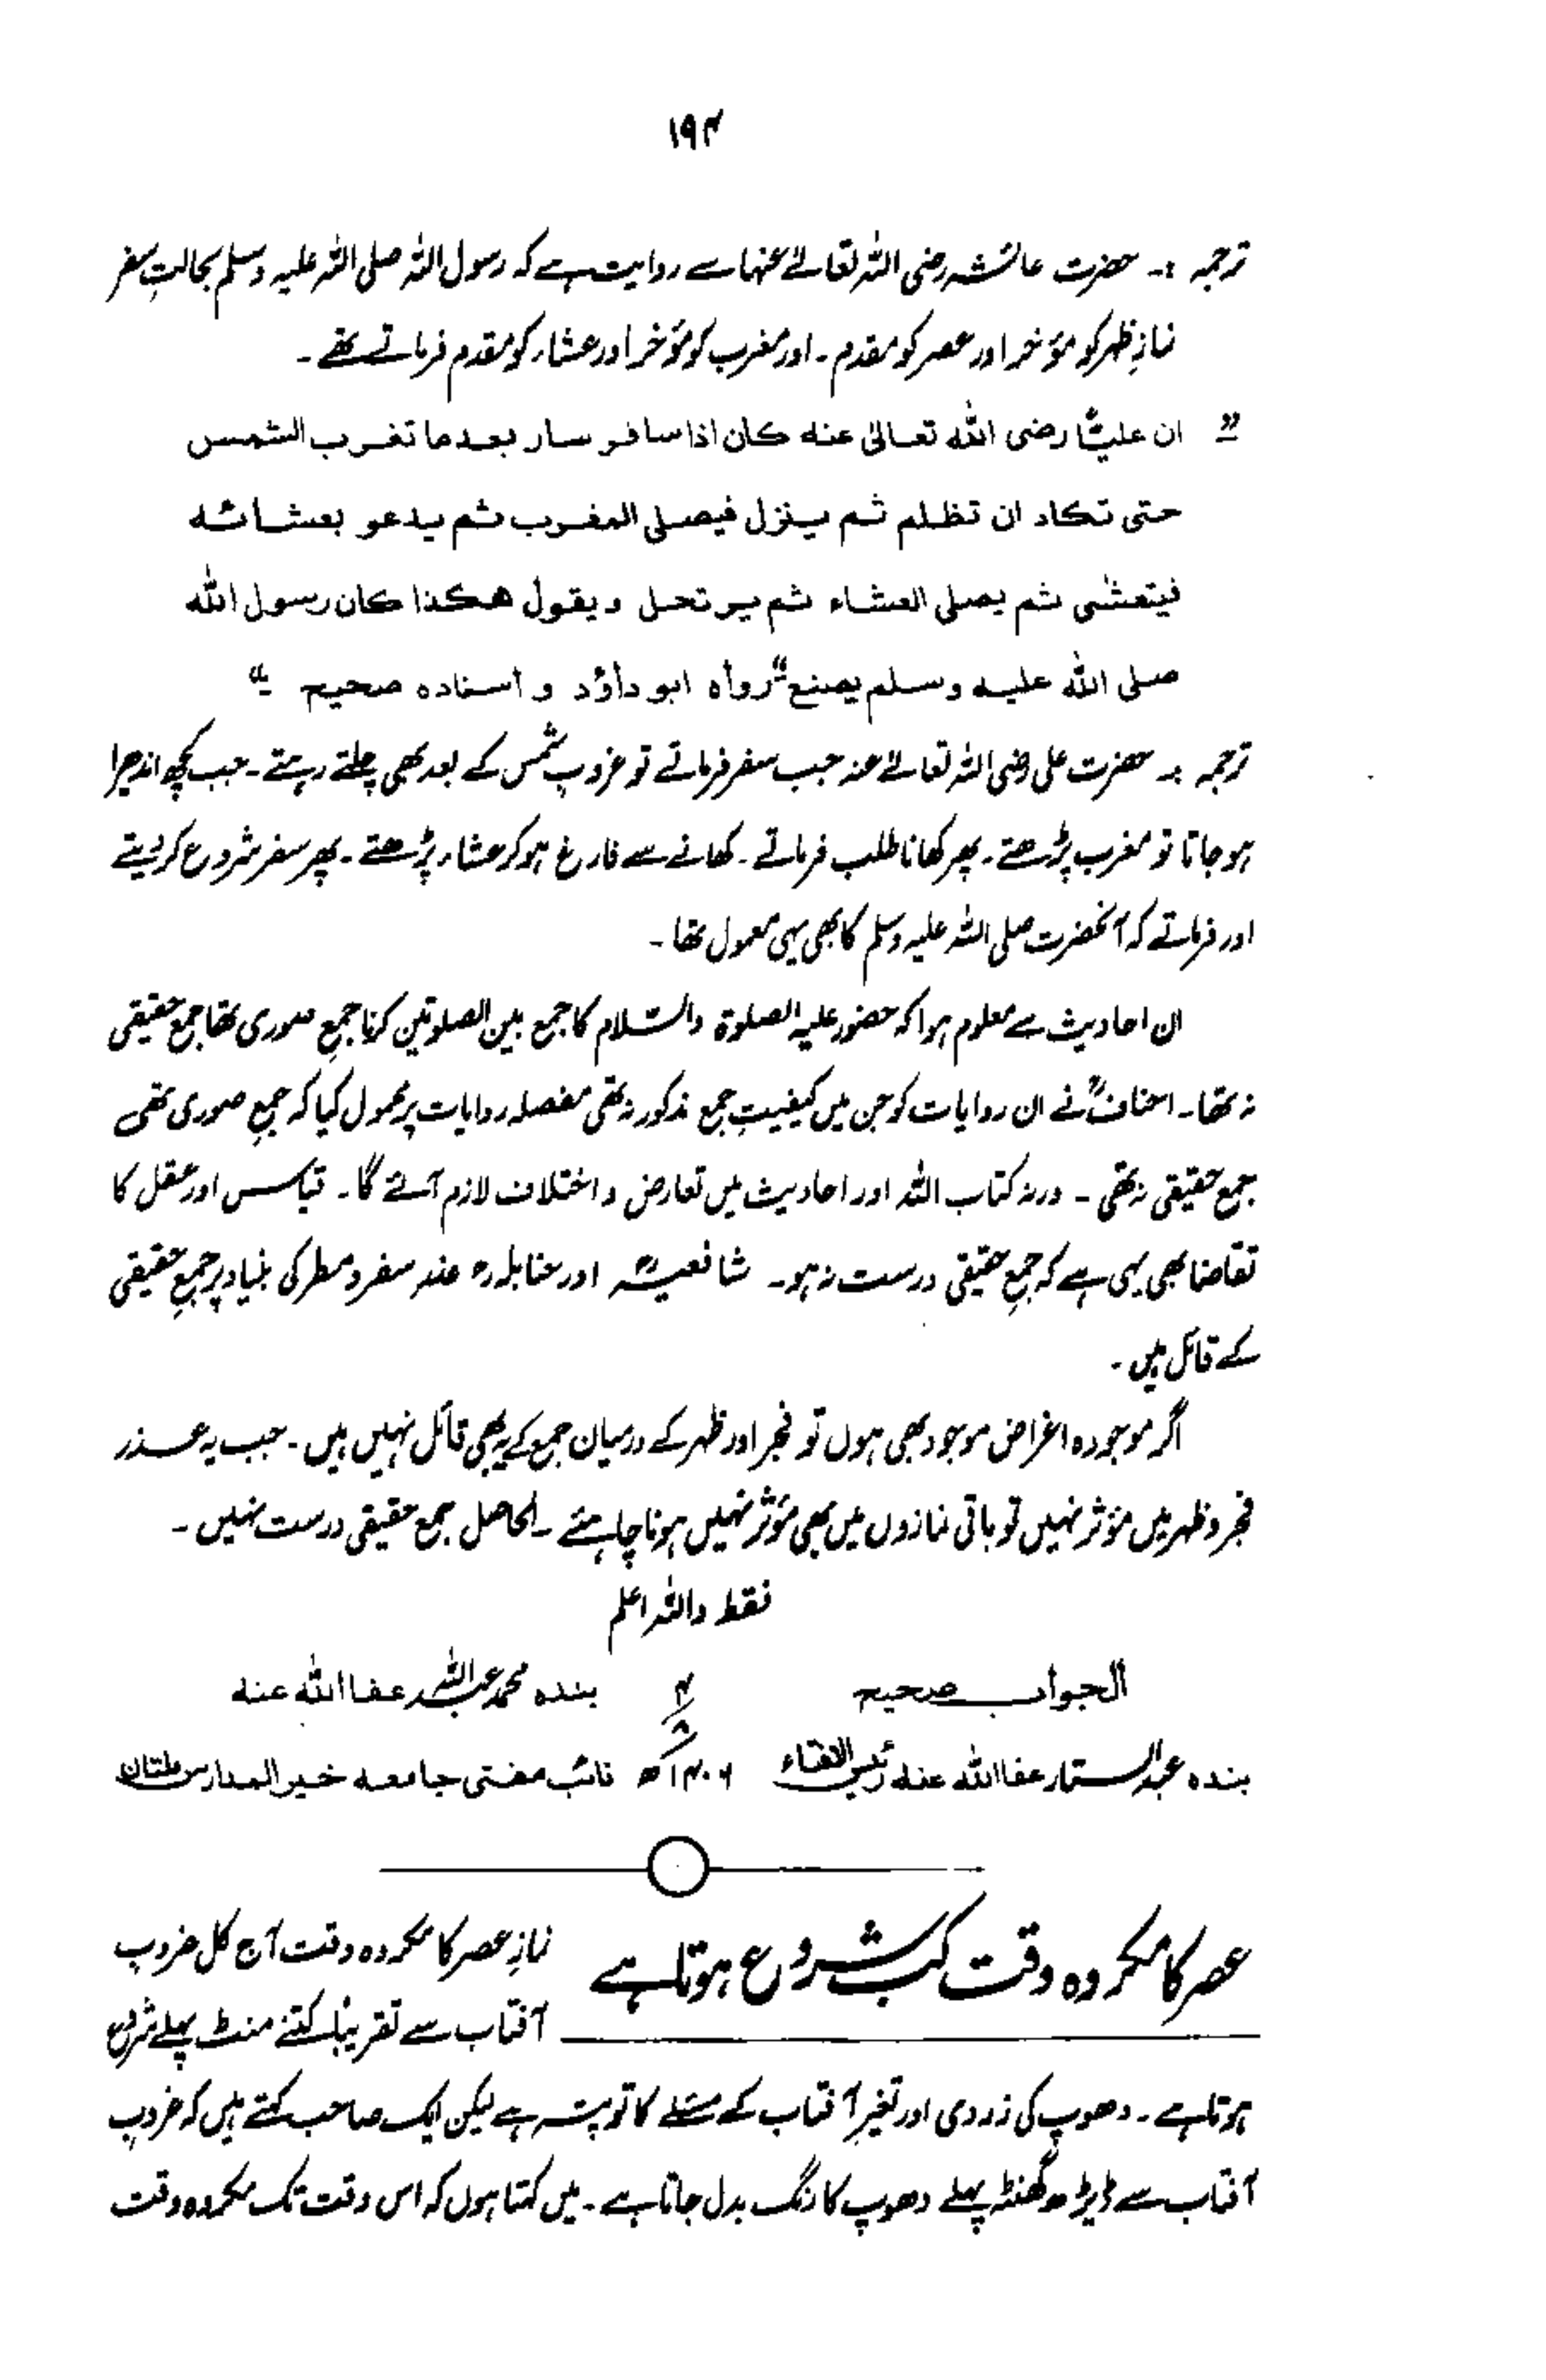 ۱۹۴
ترجمہ :۔ حضرت عائشہ رضی اللہ تعالےٰ عنہا سے روایت ہے کہ رسول اللہ صلی اللہ علیہ وسلم بحالتِ سفر
نمازِ ظہر کو مؤخر اور عصر کو مقدم۔ اور مغرب کو مؤخر اور عشاء کو مقدم فرماتے تھے۔
” ان علیاً رضی الله تعالیٰ عنه کان اذا سافر سار بعد ما تغرب الشمس
حتی تکاد ان تظلم ثم ینزل فیصلی المغرب ثم یدعو بعشائه
فیتعشی ثم یصلی العشاء ثم یرتحل ویقول هکذا کان رسول الله
صلی الله علیه وسلم یصنع“ رواه ابو داؤد و اسناده صحیح ۔“
ترجمہ :۔ حضرت علی رضی اللہ تعالےٰ عنہ جب سفر فرماتے تو غروبِ شمس کے بعد بھی چلتے رہتے۔ جب کچھ اندھیرا
ہو جاتا تو مغرب پڑھتے۔ پھر کھانا طلب فرماتے۔ کھانے سے فارغ ہو کر عشاء پڑھتے۔ پھر سفر شروع کر دیتے
اور فرماتے کہ آنحضرت صلی اللہ علیہ وسلم کا بھی یہی معمول تھا۔
ان احادیث سے معلوم ہوا کہ حضور علیہ الصلوۃ والسّلام کا جمع بین الصلوتین کرنا جمعِ صوری تھا جمع حقیقی
نہ تھا۔ احنافؒ نے ان روایات کو جن میں کیفیتِ جمع مذکور نہ تھی مفصلہ روایات پر محمول کیا کہ جمعِ صوری تھی
جمع حقیقی نہ تھی ۔ ورنہ کتاب اللہ اور احادیث میں تعارض و اختلاف لازم آئے گا۔ قیاس اور عقل کا
تقاضا بھی یہی ہے کہ جمعِ حقیقی درست نہ ہو۔ شافعیہؒ اور حنابلہ رہ عذر سفر و مطر کی بنیاد پر جمعِ حقیقی
کے قائل ہیں۔
اگر موجودہ اغراض موجود بھی ہوں تو فجر اور ظہر کے درمیان جمع کے یہ بھی قائل نہیں ہیں۔ جب یہ عذر
فجر و ظہر میں مؤثر نہیں تو باقی نمازوں میں بھی مؤثر نہیں ہونا چاہئے ۔ الحاصل جمع حقیقی درست نہیں ۔
فقط واللہ اعلم
الجواب صحیح ۴ بندہ محمد عبداللہ عفا اللہ عنہ
بندہ عبدالستار عفا اللہ عنہ رئیس الافتاء ۸ ۱۴۰۶ھ نائب مفتی جامعہ خیر المدارس ملتان
عصر کا مکروہ وقت کب شروع ہوتا ہے نمازِ عصر کا مکروہ وقت آج کل غروبِ
آفتاب سے تقریباً کتنے منٹ پہلے شروع
ہوتا ہے۔ دھوپ کی زردی اور تغیرِ آفتاب کے مسئلے کا تو پتہ ہے لیکن ایک صاحب کہتے ہیں کہ غروبِ
آفتاب سے ڈیڑھ گھنٹہ پہلے دھوپ کا رنگ بدل جاتا ہے۔ میں کہتا ہوں کہ اس وقت تک مکروہ وقت